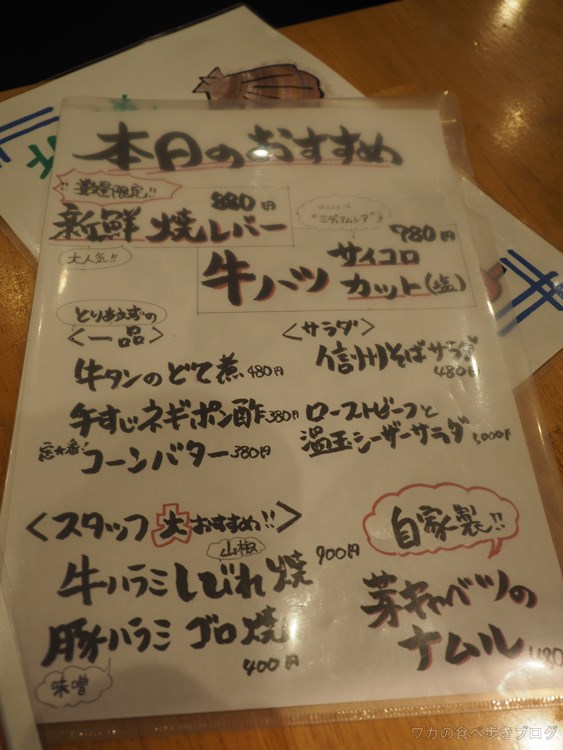 本日のおすすめ
数量限定!!
880円
新鮮焼レバー
大人気!!
"ミディアムレア"♪
780円
牛ハツ サイコロカット(塩)
とりあえずの
<一品>
牛タンのどて煮 480円
牛すじネギポン酢 380円
コーンバター 380円
<サラダ>
信州そばサラダ
480円
ローストビーフと
温玉シーザーサラダ 1,000円
<スタッフ大おすすめ!!>
山椒
牛ハラミしびれ焼 900円
豚ハラミ ゴロ焼
400円
味噌
自家製!!
芽キャベツの
ナムル
ワカの食べ歩きブログ